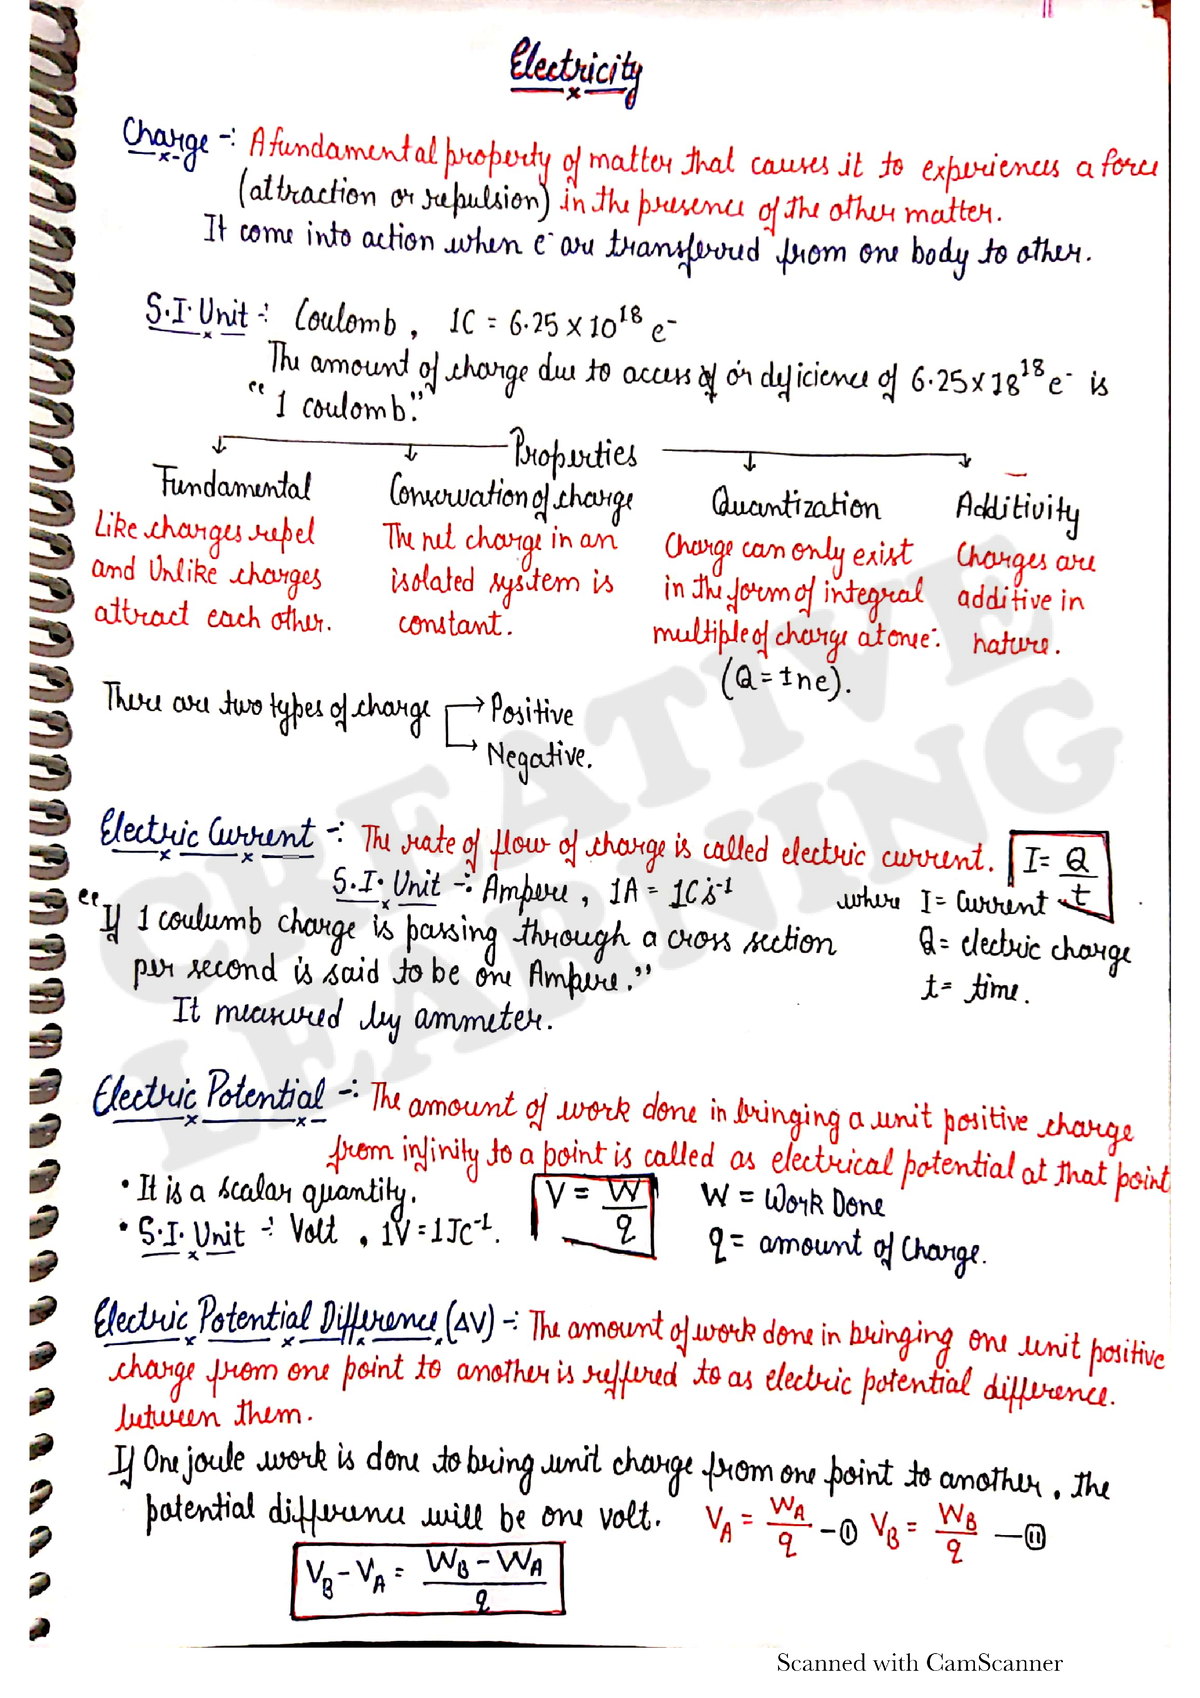 Electricity
Charge -: A fundamental property of matter that causes it to experiences a force
(attraction or repulsion) in the presence of the other matter.
It come into action when e⁻ are transferred from one body to other.
S.I. Unit -: Coulomb, 1C = 6.25 x 10¹⁸ e⁻
The amount of charge due to access of or deficience of 6.25 x 18¹⁸ e⁻ is
"1 coulomb."
Properties
Fundamental
Like charges repel
and Unlike charges
attract each other.
Conservation of charge
The net charge in an
isolated system is
constant.
Quantization
Charge can only exist
in the form of integral
multiple of charge at one:
(Q = ±ne).
Additivity
Charges are
additive in
nature.
There are two types of charge → Positive
→ Negative.
Electric Current -: The rate of flow of charge is called electric current. I = Q/t
S.I. Unit -: Ampere, 1A = 1Cs⁻¹
where I = Current
"If 1 coulumb charge is passing through a cross section
Q = electric charge
per second is said to be one Ampere."
t = time.
It measured by ammeter.
Electric Potential -: The amount of work done in bringing a unit positive charge
from infinity to a point is called as electrical potential at that point
• It is a scalar quantity.
V = W/q
W = Work Done
• S.I. Unit -: Volt, 1V = 1JC⁻¹.
q = amount of Charge.
Electric Potential Difference (ΔV) -: The amount of work done in bringing one unit positive
charge from one point to another is reffered to as electric potential difference.
between them.
If One joule work is done to bring unit charge from one point to another, the
potential difference will be one volt. V_A = W_A/q -(I) V_B = W_B/q -(II)
V_B - V_A = (W_B - W_A)/q
CREATIVE
LEARNING
Scanned with CamScanner